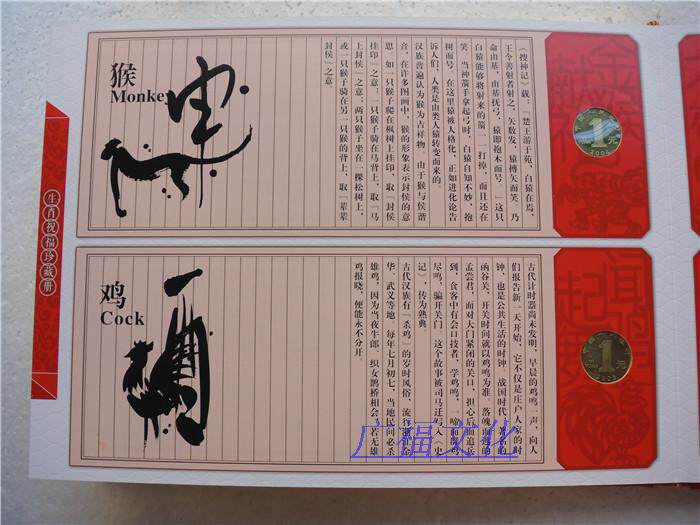 猴
Monkey
申
《搜神记》载：「楚王游于苑，白猿在焉，
王令善射者射之，矢数发，猿搏矢而笑，乃
命由基，由基抚弓，猿即抱木而号。」这只
白猿能够将射来的箭一一打掉，而且还在
笑。当神箭手拿起弓时，白猿自知不妙，抱
树而号。在这里猿被人格化，正如进化论告
诉人们：人类是由类人猿转变而来的
汉族普遍认为猴为吉祥物，由于猴与侯谐
音，在许多图画中，猴的形象表示封侯的意
思。如一只猴子爬在枫树上挂印，取「封侯
挂印」之意；一只猴子骑在马背上，取「马
上封侯」之意；两只猴子坐在一棵松树上，
或一只猴子骑在另一只猴的背上，取「辈辈
封侯」之意
1元
鸡
Cock
酉
古代计时器尚未发明，早晨的鸡鸣一声，向人
们报告新一天开始，它不仅是庄户人家的时
钟，也是公共生活的时钟。战国时代，著名的
函谷关，开关时间就以鸡鸣为准。落魄而逃的
孟尝君，面对大门紧闭的关口，担心后面追兵
到，食客中有会口技者，学鸡鸣，一啼而群鸡
尽鸣，骗开关门。这个故事被司马迁写入《史
记》，传为熟典。
古代汉族有「杀鸡」的岁时风俗，流行浙江金
华、武义等地。每年七月初七，当地民间必杀
雄鸡，因为当夜牛郎、织女鹊桥相会，若无雄
鸡报晓，便能永不分开。
1元
生肖祝福珍藏册
广福文化